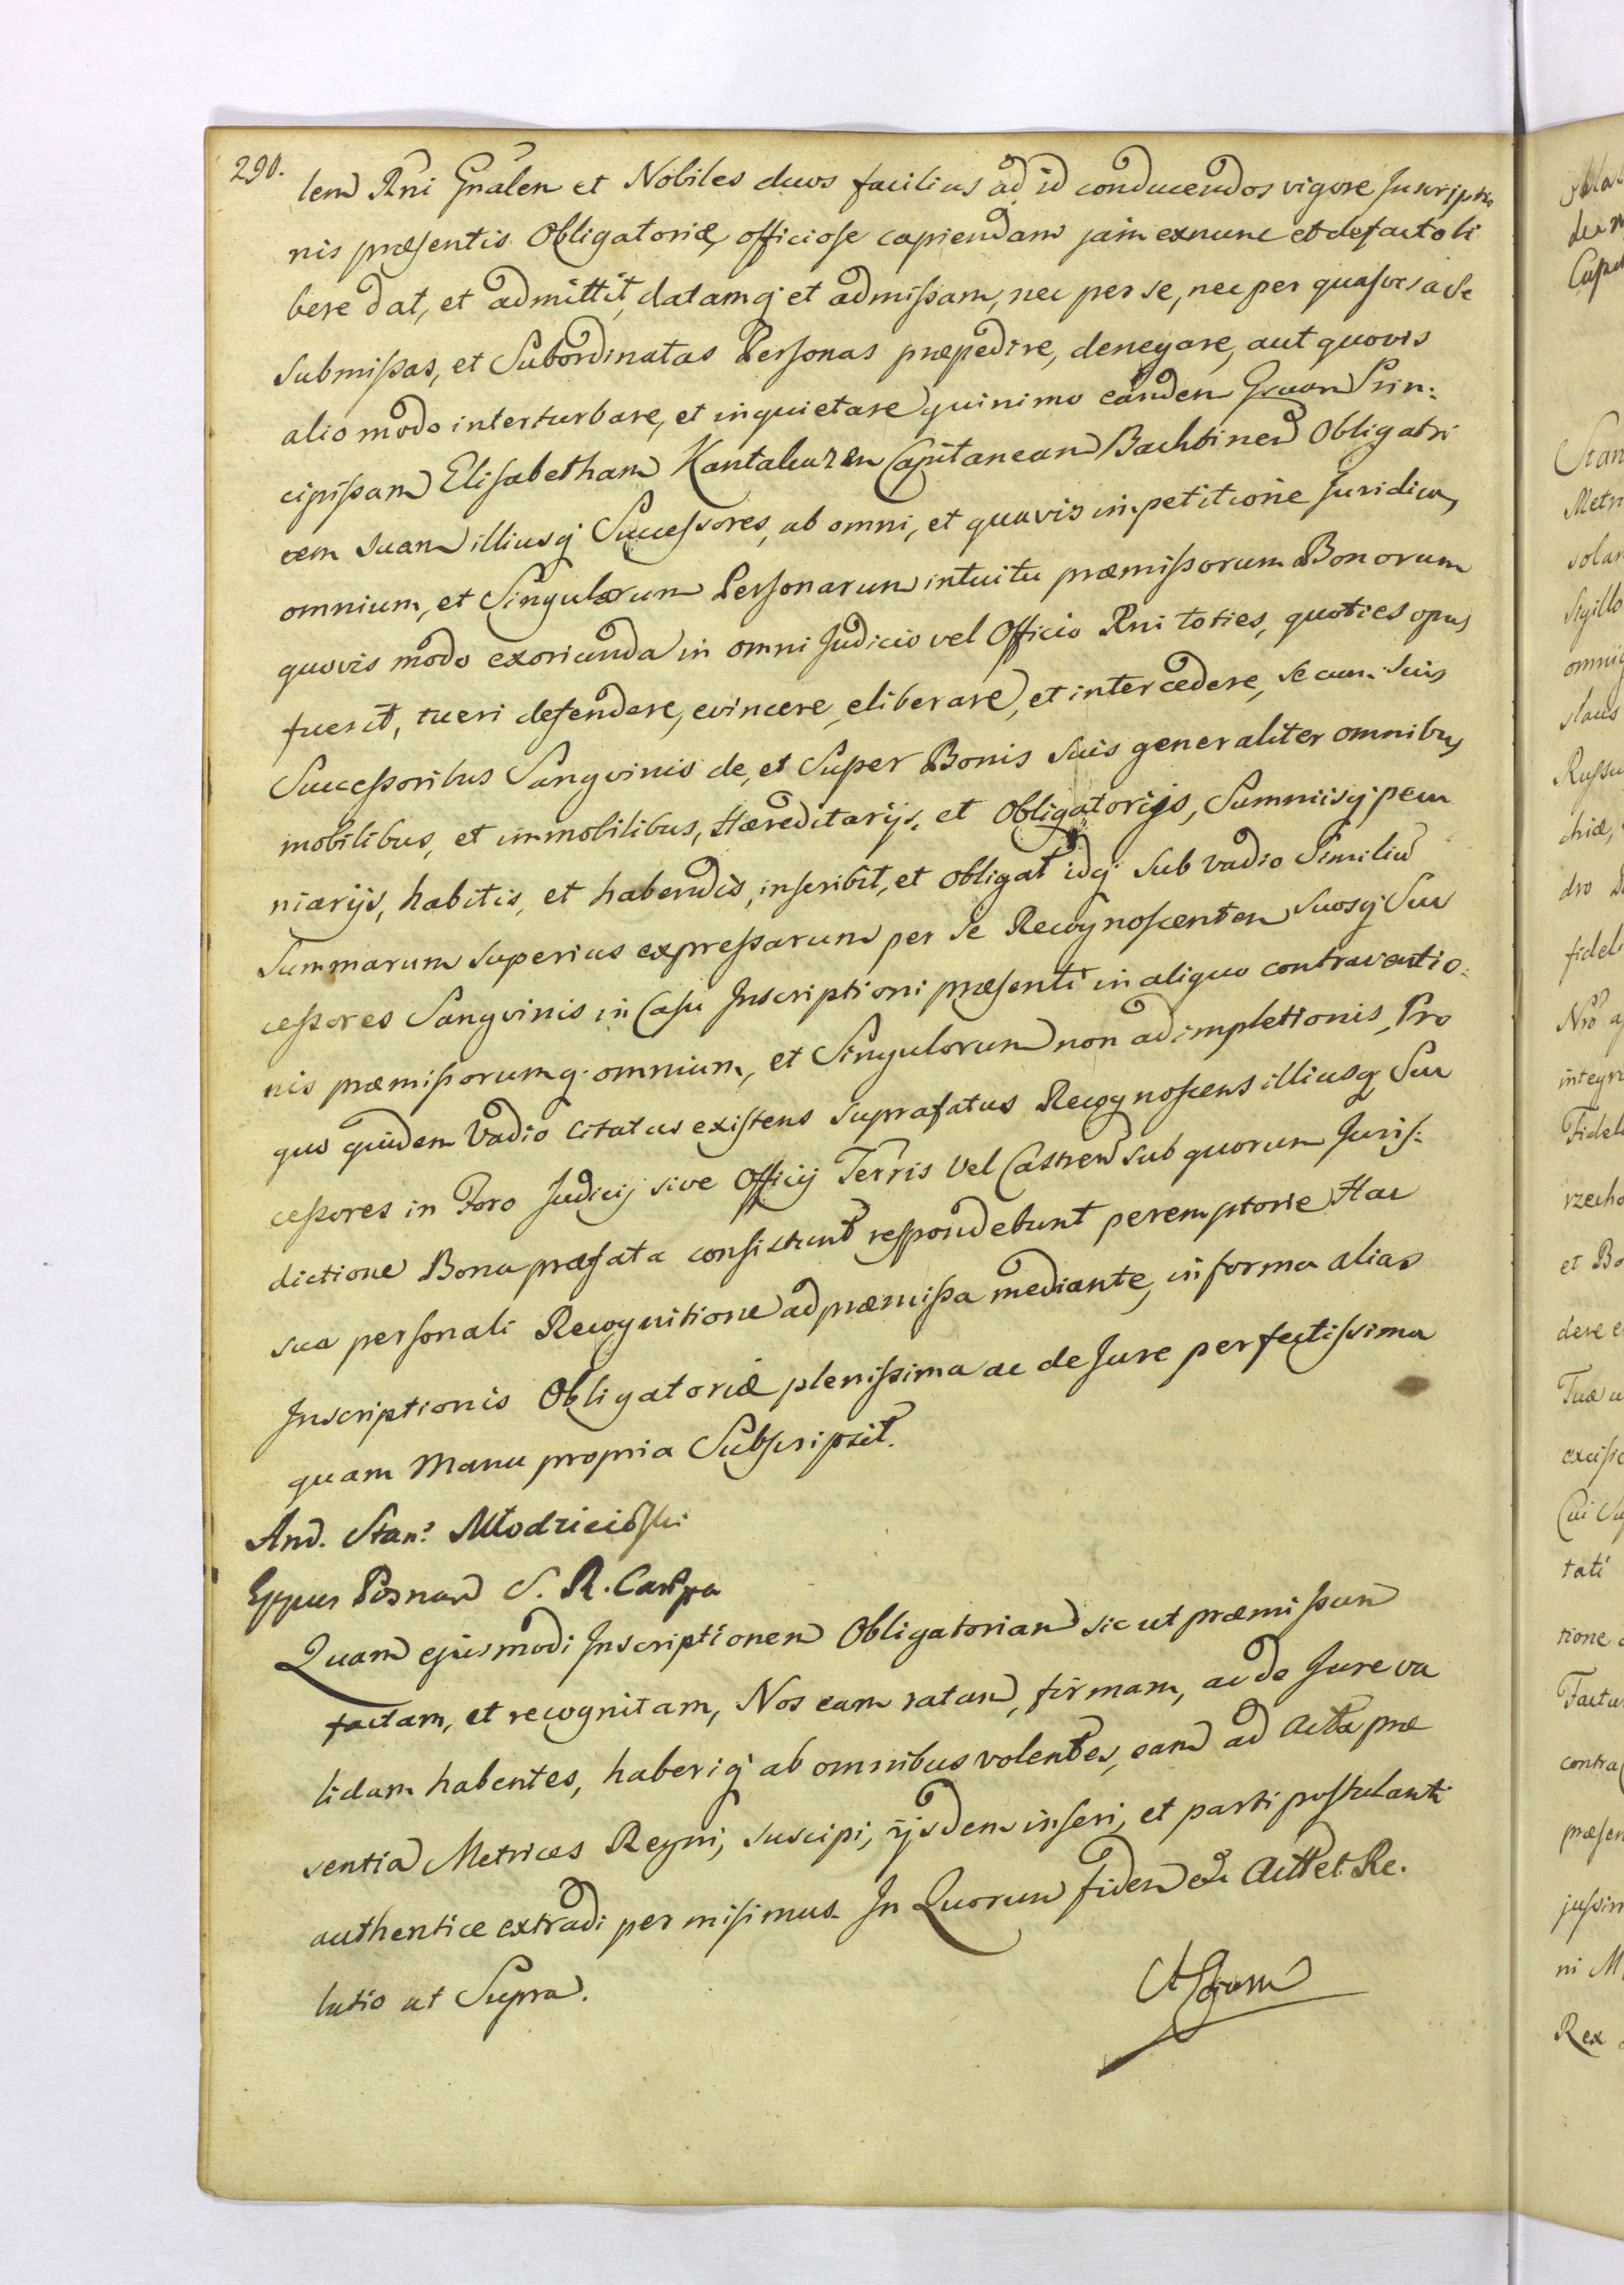 290.
lem Rni Gnãlen et Nobiles duos facilius ad id conducendos vigore Inscriptio
nis præsentis Obligatoriæ officiose capiendam jam exnunc et defacto li
bere dat, et admittit, datamq; et admissam, nec per se, nec per quasvis a se
Submissas, et Subordinatas Personas præpedire, denegare, aut quovis
alio modo interturbare, et inquietare quinimo eandem Prin:
cipissam Elisabetham Kantakuzen Capitaneam Bachtinen Obligatri
cem suam illiusq; Successores, ab omni, et quavis inpetitione Juridica,
omnium, et Singularum Personarum intuitu præmissorum Bonorum
quovis modo exorienda in omni Judicio vel Officio Rni toties, quoties opus
fuerit, tueri defendere, evincere, eliberare, et intercedere, se cum suis
Successoribus Sangvinis de, et Super Bonis Suis generaliter omnibus
mobilibus, et immobilibus, Hæreditarijs, et Obligatorijs, Summisq; pecu
niarijs, habitis, et habendis, inscribit, et obligat idq; sub vadio Similiu
Summarum superius expressarum per se Recognoscentem suosq; Suc
cessores Sangvinis in Casu Inscriptioni præsenti in aliquo contraventio:
nis præmissorumq; omnium, et Singulorum non adimpletionis, Pro
quo quidem Vadio citatus existens suprafatus Recognoscens illiusq; Suc
cessores in Foro Judicij sive Officij Terris Vel Castren sub quorum Juris:
dictione Bona præfata consistunt respondebunt peremptorie Hac
sua personali Recognitione ad præmissa mediante, in forma alias
Inscriptionis Obligatoriæ plenissima ac de Jure perfectissima
quam Manu propria Subscripsit.
And. Stan: Młodzieiowski
Eppus Posnan S. R.
Quam ejusmodi Inscriptionem Obligatoriam sic ut præmissum
factam, et recognitam, Nos eam ratam, firmam, ac de Jure va
lidam habentes, haberiq; ab omnibus volentes, eam ad Acta præ
sentia Metrices Regni, suscipi, ijsdem inseri, et parti postulanti
authentice extradi permisimus. In Quorum fidem & Act et Re.
latio ut Supra.